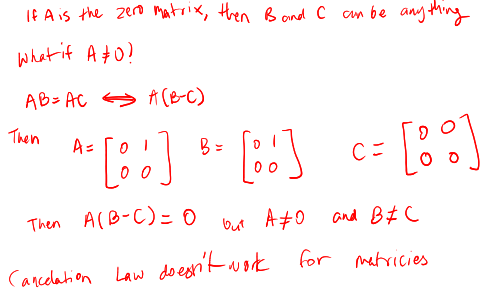 If A is the zero matrix, then B and C can be anything
What if A≠0?
AB=AC ⟺ A(B-C)
Then A= [0 1; 0 0] B= [0 1; 0 0] C= [0 0; 0 0]
Then A(B-C)=0 but A≠0 and B≠C
Cancelation Law doesn't work for matricies